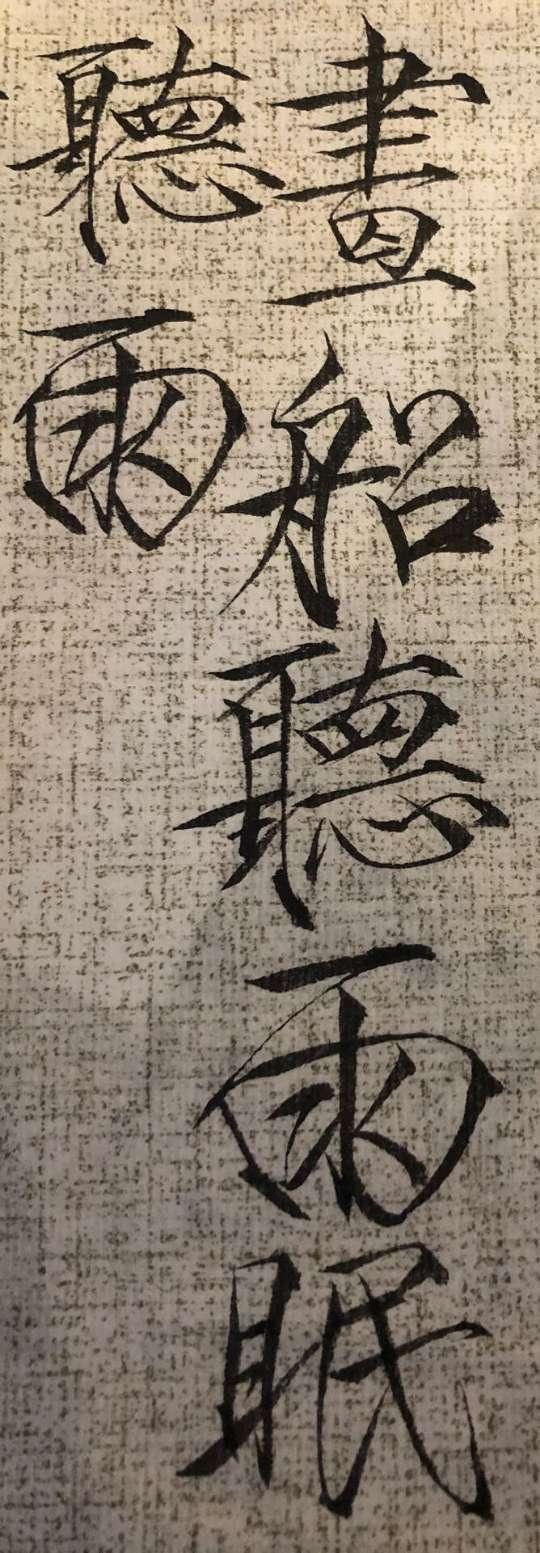 畫船聽雨眠
聽雨